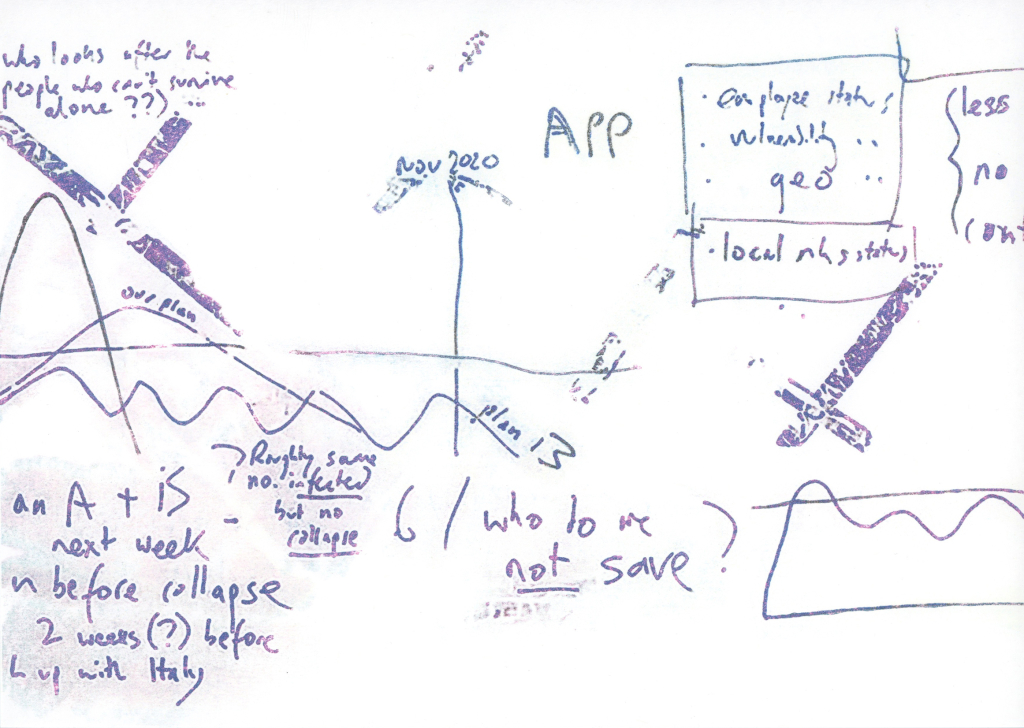 who looks after the
people who can't survive
alone ??)
Nov 2020
APP
· employee status
· vulnerability "
· geo "
· local nhs status
less
no
our plan
plan B
? Roughly same
no. infected
but no
collapse
an A + B
next week
before collapse
2 weeks (?) before
up with Italy
6 / who do we
not save ?